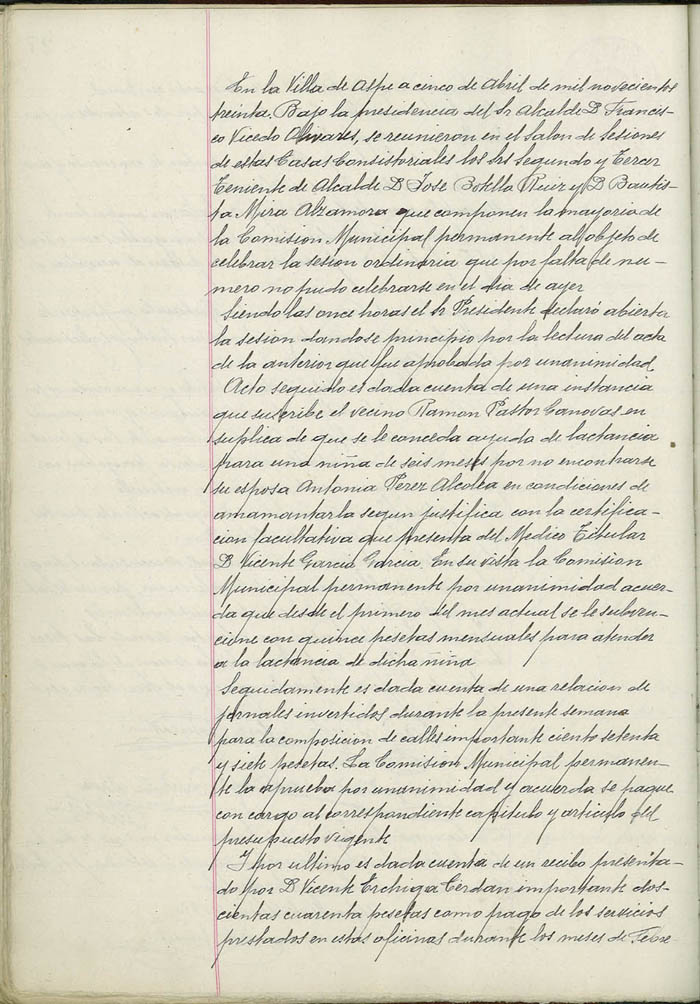 En la Villa de Aspe a cinco de Abril de mil novecientos
treinta. Bajo la presidencia del Sr Alcalde D Francis-
co Vicedo Olivares, se reunieron en el Salon de Sesiones
de estas Casas Consistoriales los Srs Segundo y Tercer
Teniente de Alcalde D Jose Botella Ruiz y D Bautis-
ta Mira Alzamora que componen la mayoria de
la Comision Municipal permanente al objeto de
celebrar la sesion ordinaria que por falta de nu-
mero no pudo celebrarse en el dia de ayer
Siendo las once horas el Sr Presidente declaró abierta
la sesion dandose principio por la lectura del acta
de la anterior que fue aprobada por unanimidad
Acto seguido es dada cuenta de una instancia
que suscribe el vecino Ramon Pastor Canovas en
suplica de que se le conceda ayuda de lactancia
para una niña de seis meses por no encontrarse
su esposa Antonia Perez Alcolea en condiciones de
amamantarla segun justifica con la certifica-
cion facultativa que presenta del Medico Titular
D Vicente Garcia Garcia. En su vista la Comision
Municipal permanente por unanimidad acuer-
da que desde el primero del mes actual se le subven-
cione con quince pesetas mensuales para atender
a la lactancia de dicha niña
Seguidamente es dada cuenta de una relacion de
jornales invertidos durante la presente semana
para la composicion de calles importante ciento setenta
y siete pesetas. La Comision Municipal permanen-
te la aprueba por unanimidad y acuerda se pague
con cargo al correspondiente capitulo y articulo del
presupuesto vigente
Y por ultimo es dada cuenta de un recibo presenta-
do por D Vicente Cerdan importante dos-
cientas cuarenta pesetas como pago de los servicios
prestados en estas oficinas durante los meses de Febre-